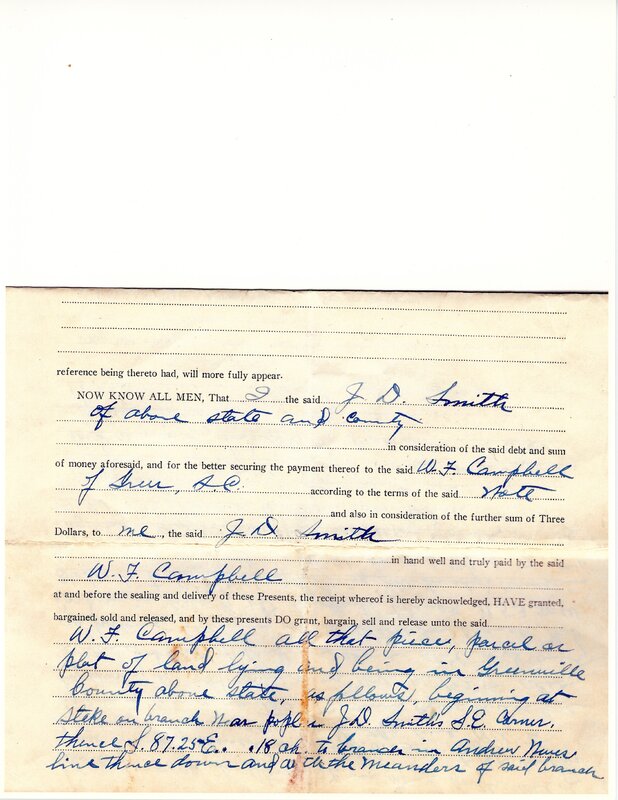 reference being thereto had, will more fully appear.
NOW KNOW ALL MEN, That I the said J D. Smith
of above state and county
in consideration of the said debt and sum
of money aforesaid, and for the better securing the payment thereof to the said W. F. Campbell
of Greer, S.C. according to the terms of the said Note
and also in consideration of the further sum of Three
Dollars, to me, the said J D Smith
in hand well and truly paid by the said
W. F. Campbell
at and before the sealing and delivery of these Presents, the receipt whereof is hereby acknowledged, HAVE granted,
bargained, sold and released, and by these presents DO grant, bargain, sell and release unto the said
W. F. Campbell all that piece, parcel or
plat of land lying and being in Greenville
County above state, as follows, beginning at
Stake on branch near J D Smiths S E Corner,
thence S. 87.25 E. .18 ch to branch in Andrew
line thence down and with the meanders of said branch